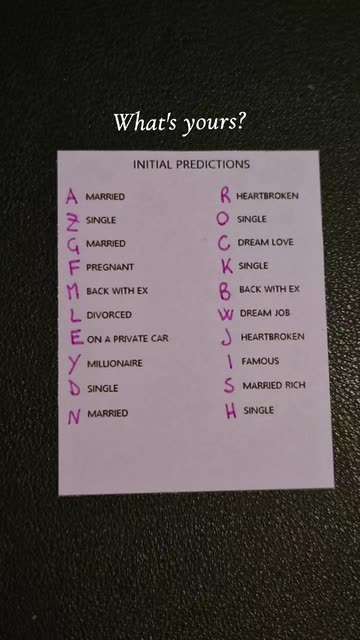 What's yours?
INITIAL PREDICTIONS
A MARRIED
Z SINGLE
G MARRIED
F PREGNANT
M BACK WITH EX
L DIVORCED
E ON A PRIVATE CAR
Y MILLIONAIRE
D SINGLE
N MARRIED
R HEARTBROKEN
O SINGLE
C DREAM LOVE
K SINGLE
B BACK WITH EX
W DREAM JOB
J HEARTBROKEN
I FAMOUS
S MARRIED RICH
H SINGLE